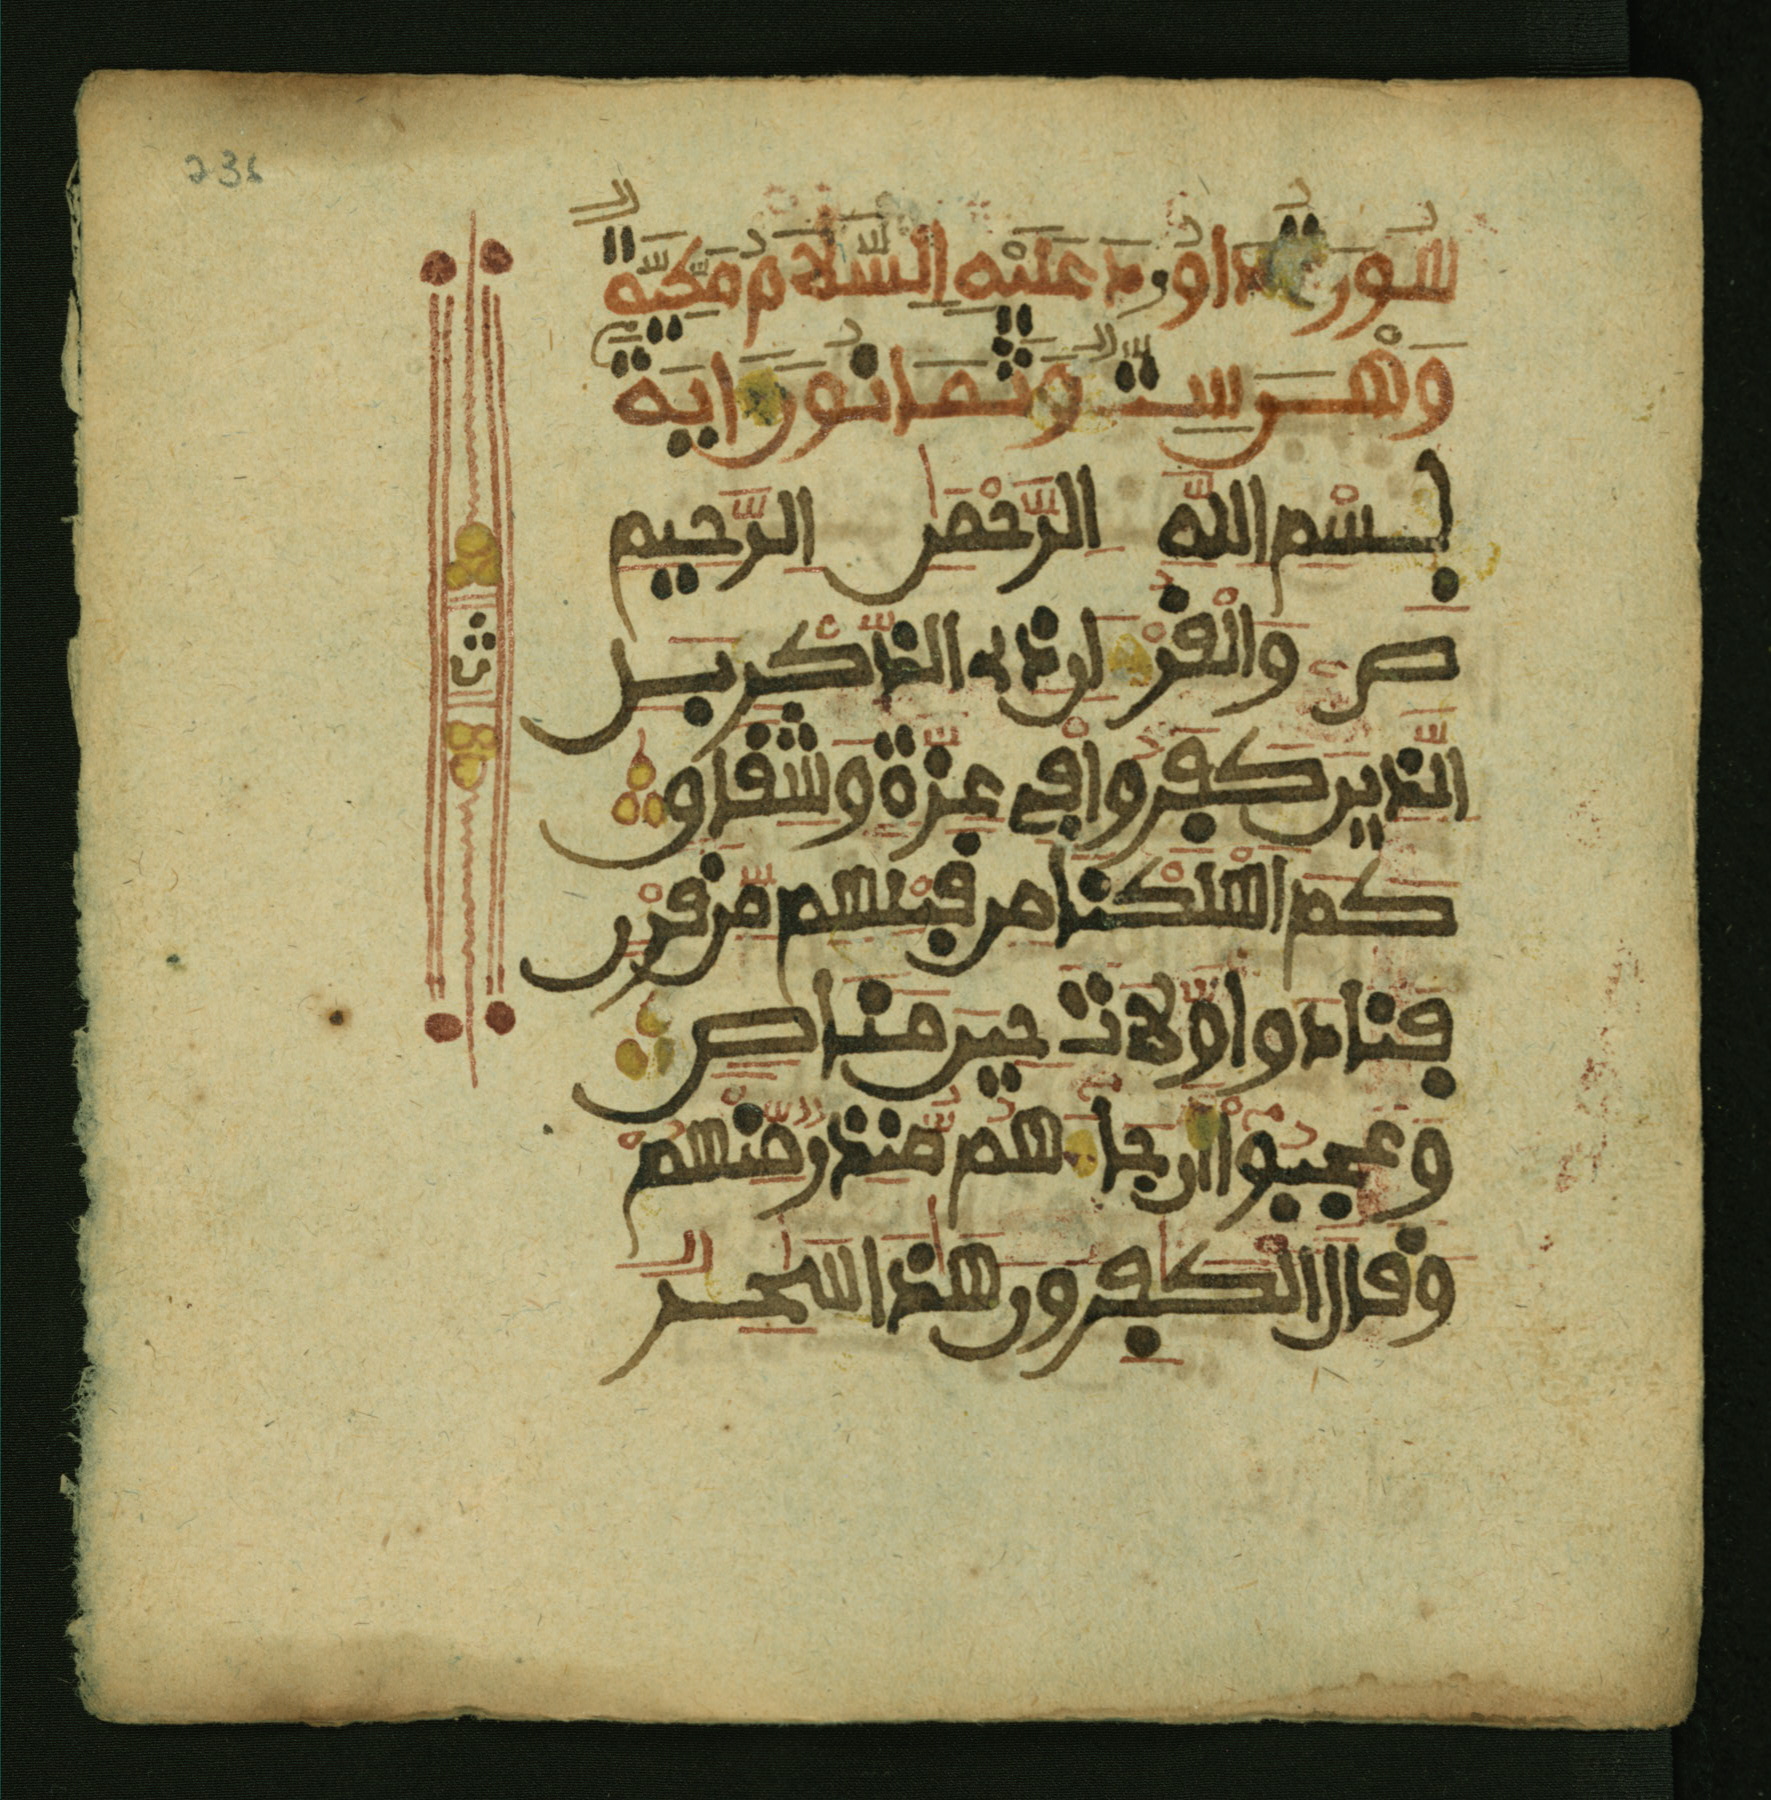 236
سُورَةُ دَاوُودَ عَلَيْهِ السَّلَامُ مَكِّيَّةٌ
وَهْيَ سِتٌّ وَثَمَانُونَ ايَةً
بِسْمِ اللَّهِ الرَّحْمَٰنِ الرَّحِيمِ
ص وَالْقُرْءَانِ ذِى الذِّكْرِ بَلِ
الَّذِينَ كَفَرُوا فِى عِزَّةٍ وَشِقَاقٍ
كَمَ اهْلَكْنَا مِن قَبْلِهِم مِّن قَرْنٍ
فَنَادَوا وَّلَاتَ حِينَ مَنَاصٍ
وَعَجِبُوا أَن جَاءَهُم مُّنذِرٌ مِّنْهُمْ
وَقَالَ الْكَٰفِرُونَ هَٰذَا سَٰحِرٌ
ث